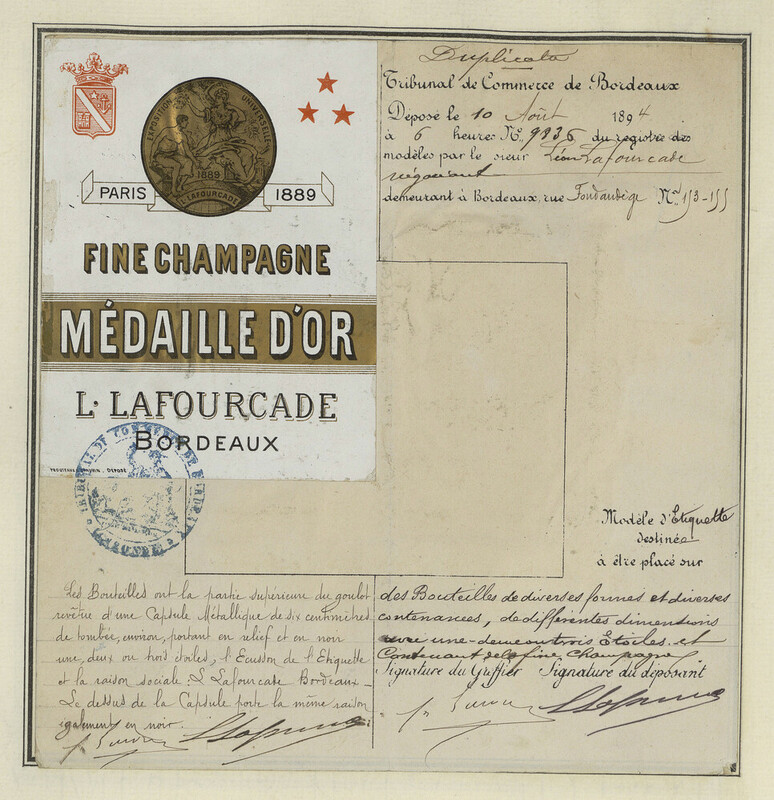 Duplicata
Tribunal de Commerce de Bordeaux
Déposé le 10 Août 1894
à 6 heures N° 9236 du registre des
modèles par le sieur Léon Lafourcade
négociant
demeurant à Bordeaux, rue Fondaudège Nos 153-155
EXPOSITION UNIVERSELLE
1889
L. LAFOURCADE
PARIS 1889
FINE CHAMPAGNE
MÉDAILLE D'OR
L. LAFOURCADE
BORDEAUX
DÉPOSÉ
TRIBUNAL DE COMMERCE DE BORDEAUX
Modèle d'Etiquette
destinée
à être placé sur
des Bouteilles de diverses formes et diverses
contenances, de différentes dimensions
avec une-deux ou trois Etoiles et
Contenant de la fine Champagne
Signature du Greffier Signature du déposant
Les Bouteilles ont la partie supérieure du goulot
revêtue d'une Capsule Métallique de six centimètres
de tombée, environ, portant en relief et en noir
une, deux ou trois étoiles, l'Ecusson de l'Etiquette
et la raison sociale: L Lafourcade Bordeaux_
Le dessus de la Capsule porte la même raison
également en noir.